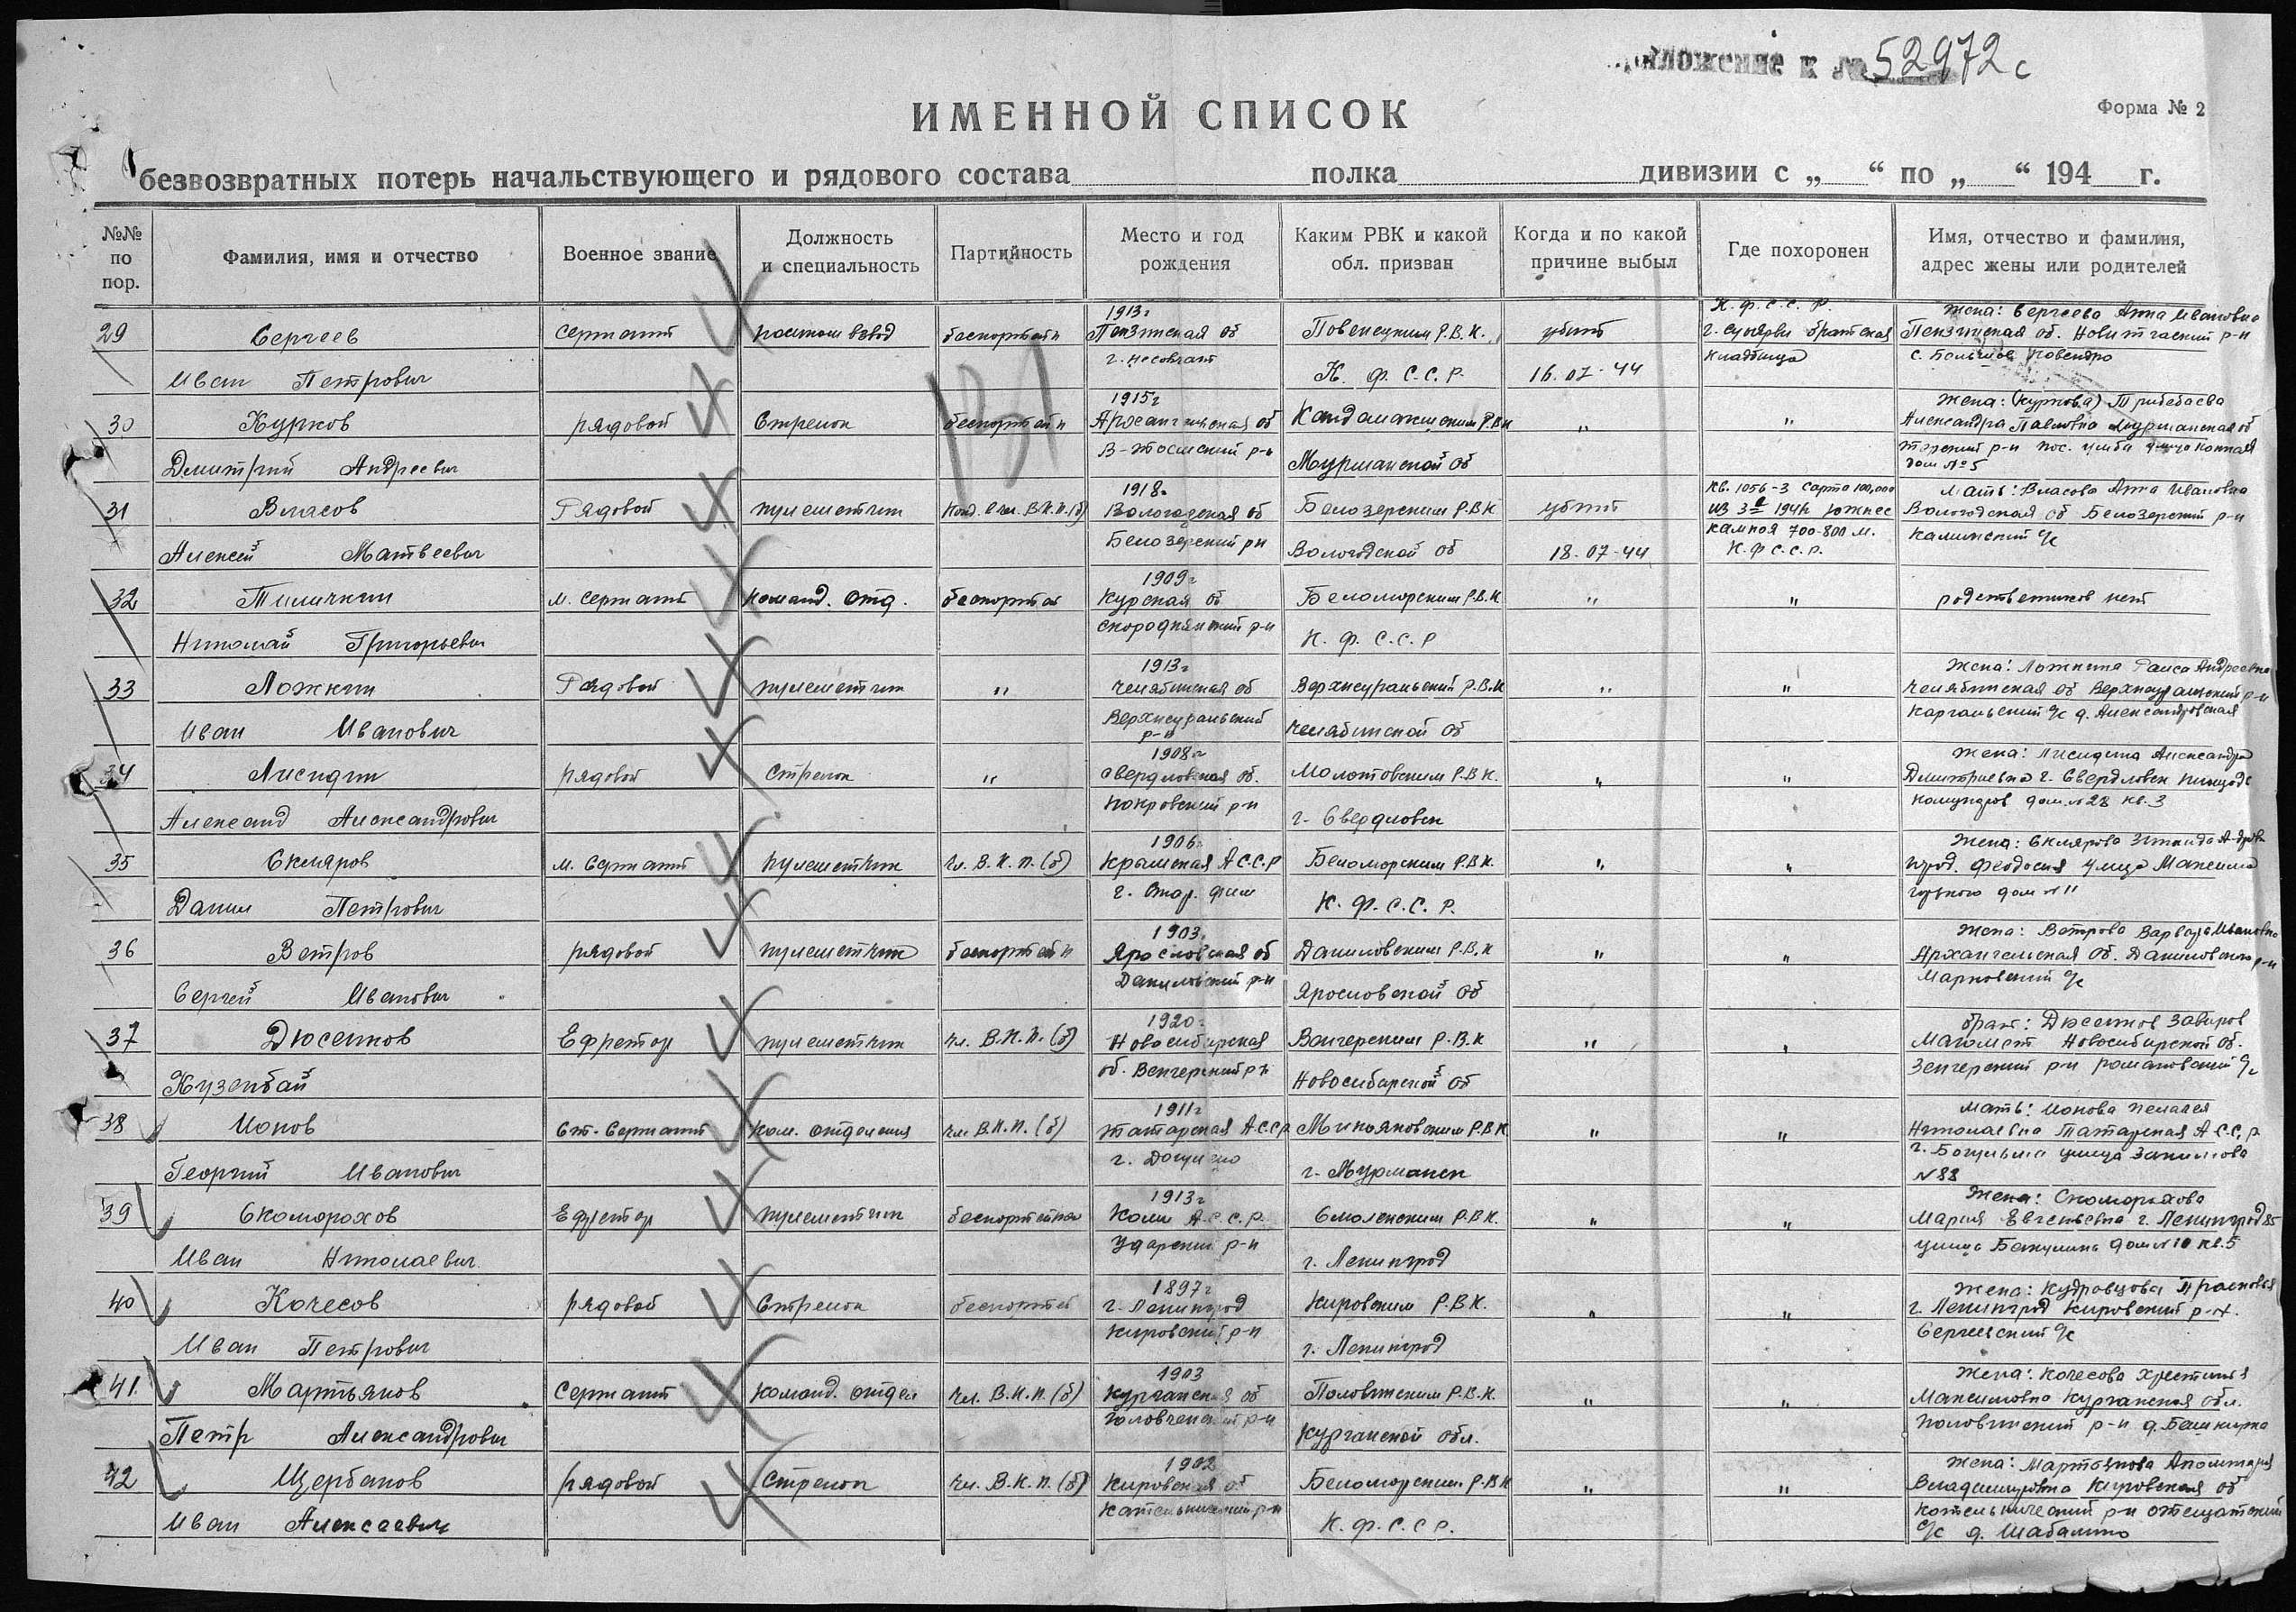 Приложение к № 52972с
ИМЕННОЙ СПИСОК
Форма № 2
безвозвратных потерь начальствующего и рядового состава полка дивизии с „ “ по „ “ 194 г.
№№ по пор.
Фамилия, имя и отчество
Военное звание
Должность и специальность
Партийность
Место и год рождения
Каким РВК и какой обл. призван
Когда и по какой причине выбыл
Где похоронен
Имя, отчество и фамилия, адрес жены или родителей
29 Сергеев Иван Петрович
сержант
беспартийн
1913г Пензинская об
Повенецким Р.В.К. К. ф. С.С.Р.
убит 16.07.44
К.ф.С.С.Р. братская кладбища
Жена: Сергеева Анна Ивановна Пензинская об.
30 Курков Дмитрий Андреевич
рядовой
Стрелок
беспартийн
1915г
В-Тоемский р-н
Кандалакшским Р.ВК Мурманской об
"
"
Жена: (Куркова) Александра Павловна Мурманская об
Терский р-н пос. Умба дом №5
31 Власов Алексей Матвеевич
Рядовой
пулеметчик
Канд. в чл. В.К.П.(б)
1918г Вологодская об Белозерский рн
Белозерским Р.ВК Вологодской об
убит 18-07-44
кв. 1056-3 Карта 100,000 из 194 южнее 700-800 м. К.ф.С.С.Р.
Мать: Власова Анна Ивановна Вологодская об Белозерский р-н
32 Тиличкин Николай Григорьевич
м. сержант
Команд. отд.
беспартий
1909г Курская об Скороднянский р-н
Беломорским Р.В.К К. ф. С.С.Р
"
"
родственников нет
33 Ложкин Иван Иванович
Рядовой
пулеметчик
"
1913г Челябинская об Верхнеуральский р-н
Верхнеуральский Р.В.К Челябинской об
"
"
Жена: Ложкина Раиса Андреевна Челябинская об Верхнеуральский р-н
с/с д. Александровская
34 Лисидин Александ Александрович
рядовой
Стрелок
"
1908г Свердловская об. Покровский р-н
Молотовским Р.ВК. г. Свердловск
"
"
Жена: Лисидина Александра Дмитриевна г. Свердловск дом №28 кв.3
35 Скляров Данил Петрович
м. Сержант
пулеметчик
Чл. В.К.П.(б)
1906г Крымская А.С.С.Р
Беломорским Р.ВК. К.ф.С.С.Р.
"
"
Жена: Склярова Зинаида
Феодосия улица Максима Горького дом №11
36 Ветров Сергей Иванович
рядовой
пулеметчик
беспартийн
1903г Ярославская об Даниловский р-н
Даниловским Р.В.К Ярославской об
"
"
Жена: Ветрова Варвара Ивановна Архангельская об. Даниловский р-н Марковский с/с
37 Дюсенков Кузенбай
Ефрейтор
пулеметчик
Чл. В.К.П.(б)
1920г Новосибирская об. Венгерский р-н
Венгерским Р.В.К Новосибирской об
"
"
брат: Дюсенков
Новосибирской об. Венгерский р-н Романовский с/с
38 Ионов Георгий Иванович
Ст. Сержант
Ком. отделения
Чл В.К.П.(б)
1911г Татарская А.С.С.Р
Микояновским Р.В.К г. Мурманск
"
"
Мать: Ионова Пелагея Николаевна Татарская А.С.С.Р г. Бугульма улица
№88
39 Скоморохов Иван Николаевич
Ефрейтор
пулеметчик
беспартейный
1913г Коми А.С.С.Р. Удорский р-н
Смоленским Р.ВК. г. Ленинград
"
"
Жена: Скоморохова Мария Евгеньевна г. Ленинград
улица дом №10 кв.5
40 Кочесов Иван Петрович
рядовой
Стрелок
беспартей
1897г г. Ленинград Кировский р-н
Кировским Р.ВК. г. Ленинград
"
"
Жена: Кудровцова Прасковья г. Ленинград Кировский р-н. Сергиевский с/с
41 Мартьянов Петр Александрович
Сержант
Команд. отдел
Чл. В.К.П.(б)
1903 Курганская об
Половинским Р.В.К. Курганской обл.
"
"
Жена: Кочесова Христинья Максимовна Курганская обл. Половинский р-н д. Башкирка
42 Щербаков Иван Алексеевич
рядовой
Стрелок
Чл. В.К.П.(б)
1902 Кировская об
Беломорским Р.ВК К.ф.С.С.Р.
"
"
Жена: Мартьянова
Владимировна Кировская об Котельнический р-н
с/с д. Шабалино